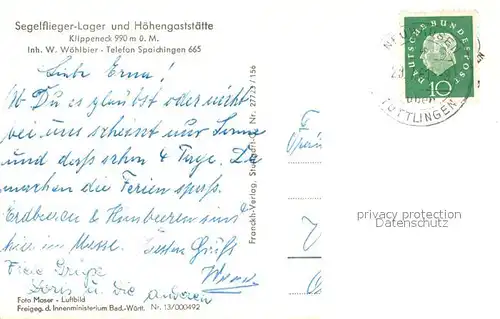 Segelflieger-Lager und Höhengaststätte
Klippeneck 990 m ü. M.
Inh. W. Wöhlbier - Telefon Spaichingen 665
Liebe Erna!
Ob Du es glaubst oder nicht
bei uns scheint nur Sonne
und daß schon 4 Tage. Da
machen die Ferien spaß.
Erdbeeren & Himbeeren sind
hier in Masse. Besten Gruß
Freie Grüße
Doris u. die anderen
Foto Moser - Luftbild
Freigeg. d. Innenministerium Bad.-Württ. Nr. 13/000492
Franckh-Verlag, Stuttgart-O Nr. 27/23/156
DEUTSCHE BUNDESPOST
10
TUTTLINGEN
privacy protection
Datenschutz